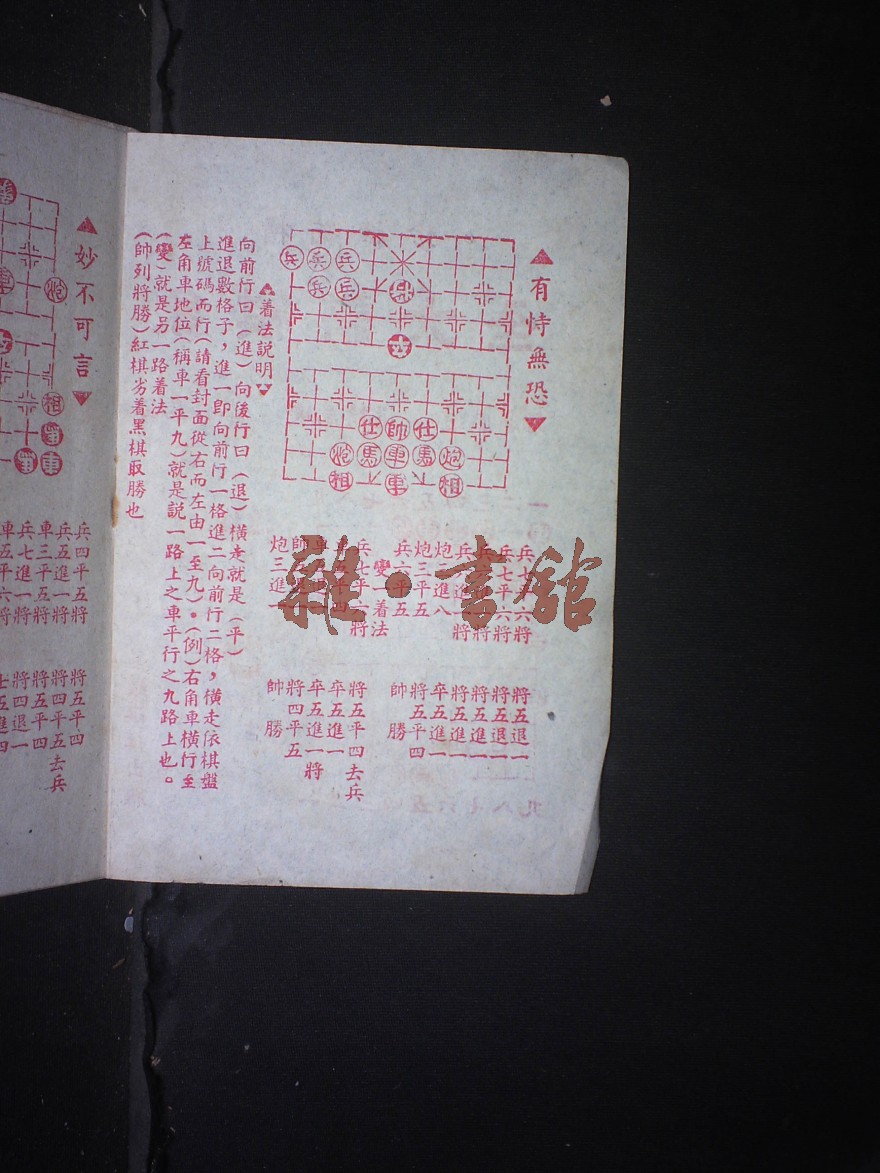 有恃無恐
兵
兵
兵
兵
兵
仕
帥
仕
炮
馬
車
馬
炮
相
車
相
兵七平六將
炮二進八
炮三平五
兵六平五
變一着法
兵七平六將
炮三進一
將五退一
將五退一
將五進一
將五進一
卒五進一
將五平四
帥勝
將五平四去兵
卒五進一
卒五進一將
將四平五
帥勝
着法說明
向前行曰(進)向後行曰(退)橫走就是(平)
進退數格子，進一即向前行一格進二向前行二格，橫走依棋盤
上號碼而行(請看封面從右而左由一至九)。(例)右角車橫行至
左角車地位(稱車一平九)就是說一路上之車平行之九路上也。
(變)就是另一路着法
(帥列將勝)紅棋劣着黑棋取勝也
雜·書館
妙不可言
炮
相
車
兵四平五將
兵五進一將
車三平五將
兵七進一將
車五平六將
將五平四
將四平五去兵
將五平四
將四退一
士五進四